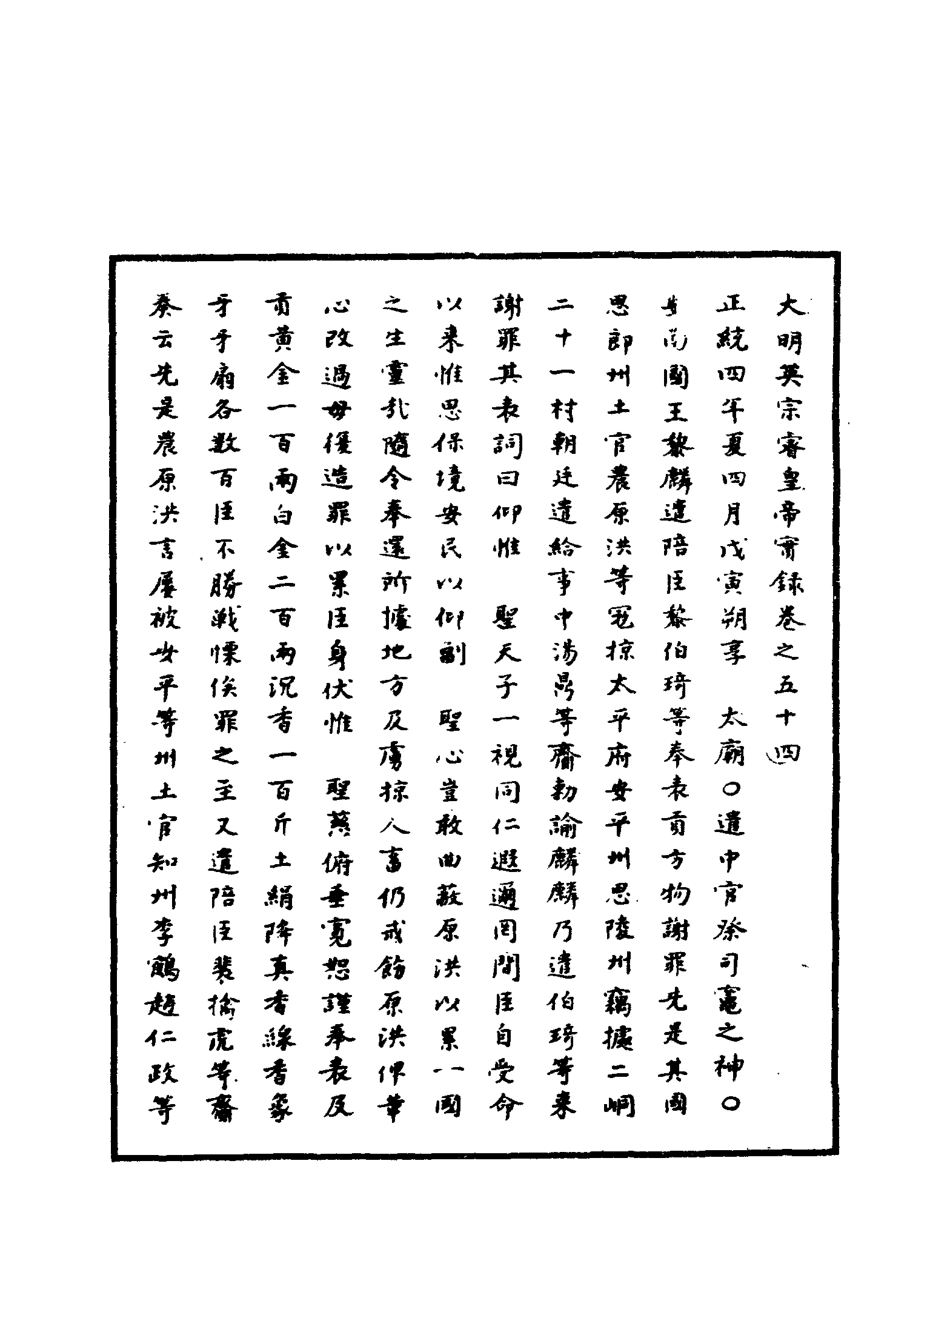 大明英宗睿皇帝實録卷之五十四
正統四年夏四月戊寅朔享　太廟○遣中官祭司竈之神○
安南國王黎麟遣陪臣黎伯琦等奉表貢方物謝罪先是其國
思郎州土官農原洪等冦掠太平府安平州思陵州竊據二峒
二十一村朝廷遣給事中湯鼎等齎勑諭麟麟乃遣伯琦等來
謝罪其表詞曰仰惟　聖天子一視同仁遐邇罔間臣自受命
以來惟思保境安民以仰副　聖心豈敢曲蔽原洪以累一國
之生靈㢤隨令奉還所據地方及虜掠人畜仍戒飭原洪俾革
心改過毋復造罪以累臣身伏惟　聖慈俯垂寬恕謹奉表及
貢黃金一百兩白金二百兩沉香一百斤土絹降真香線香象
牙牙扇各数百臣不勝戰慄俟罪之至又遣陪臣裴擒虎等齎
奏云先是農原洪言屢被安平等州土官知州李鶴趙仁政等